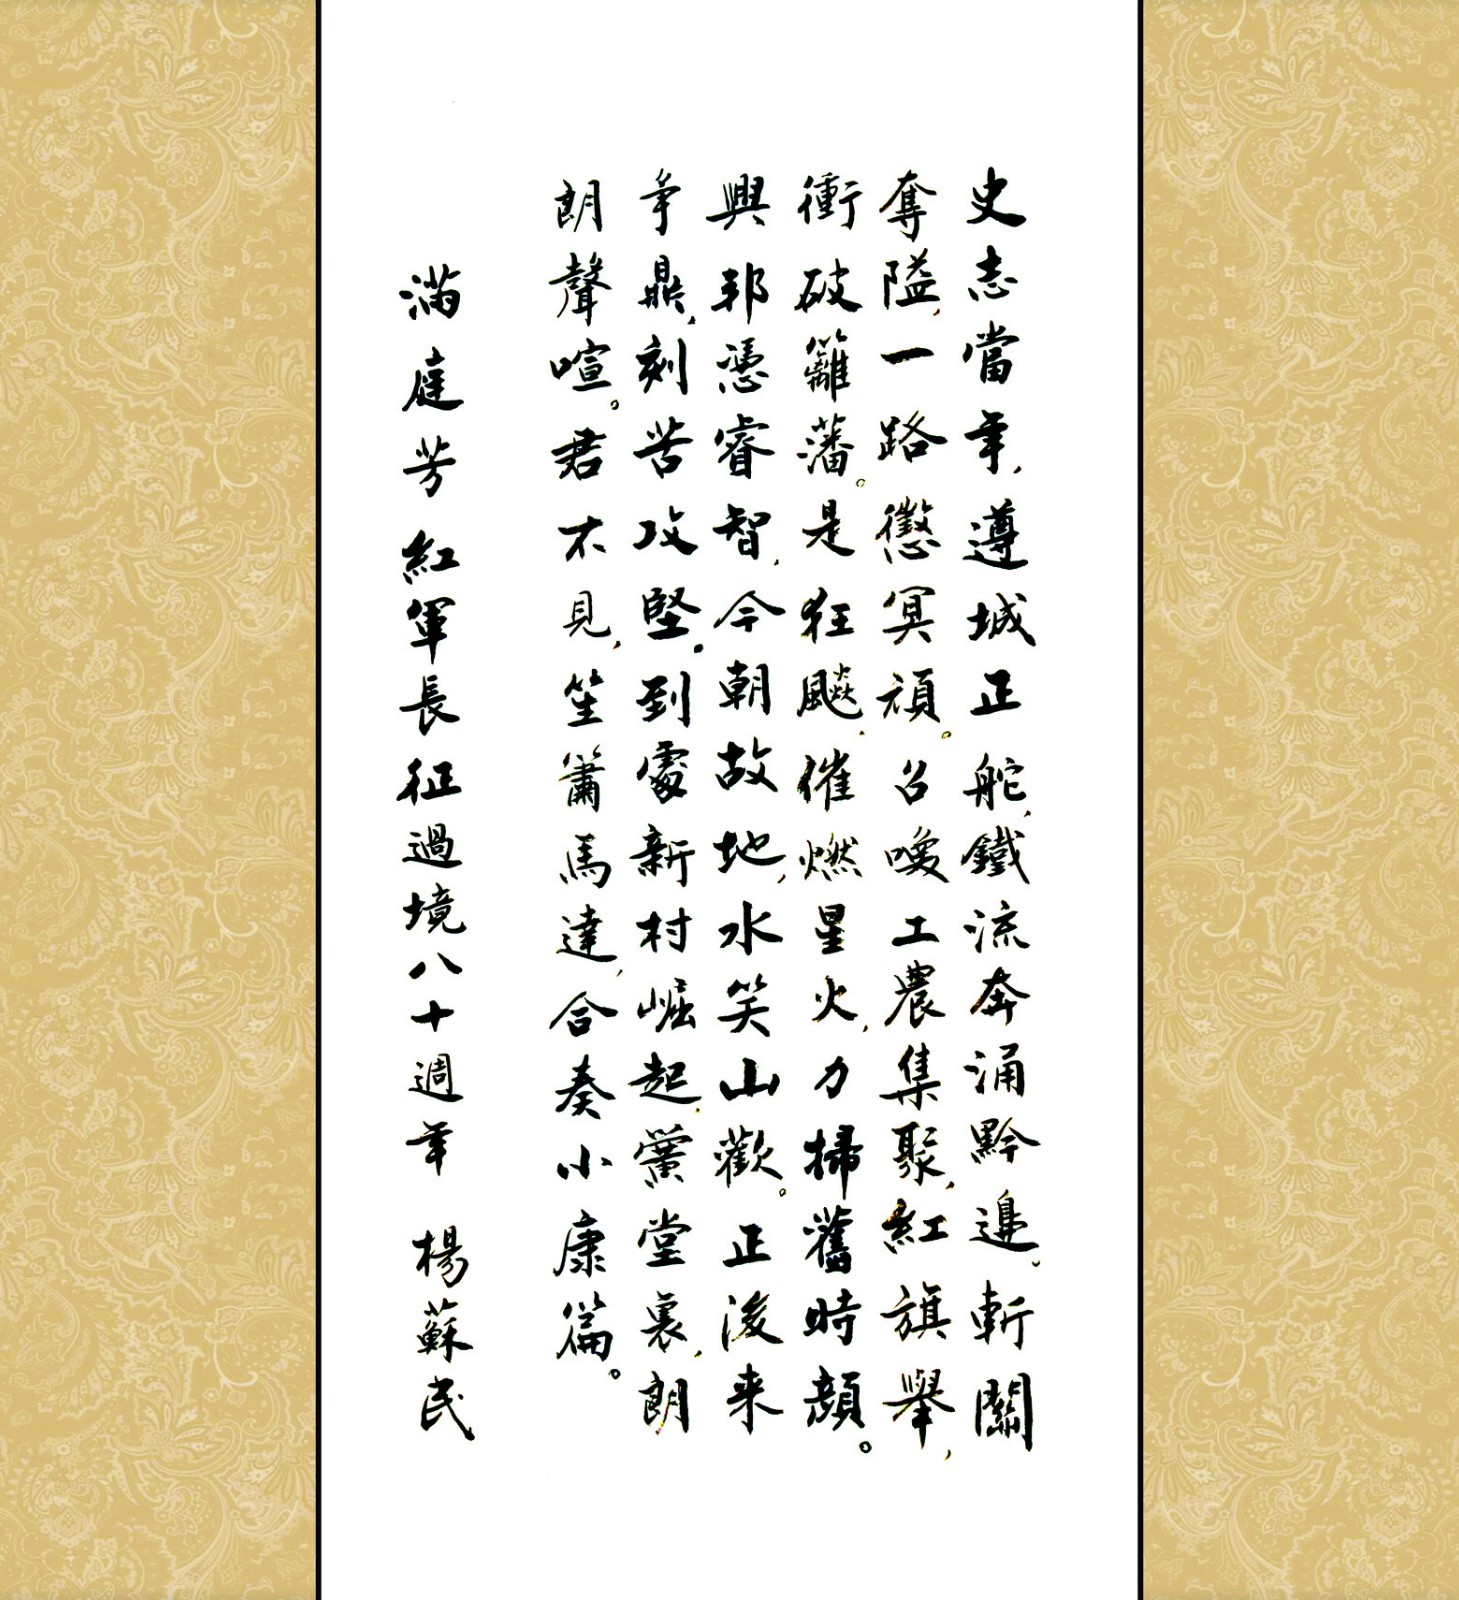 史志當年，遵城正舵，鐵流奔涌黔邊。斬關
奪隘，一路懲冥頑。召喚工農集聚，紅旗舉，
衝破籬藩。是狂飈，催燃星火，力掃舊時顏。
興邦憑睿智，今朝故地，水笑山歡。正後来
爭鼎，刻苦攻堅。到處新村崛起，黌堂裏，朗
朗聲喧。君不見，笙簫馬達，合奏小康篇。
滿庭芳 紅軍長征過境八十週年 楊蘇民